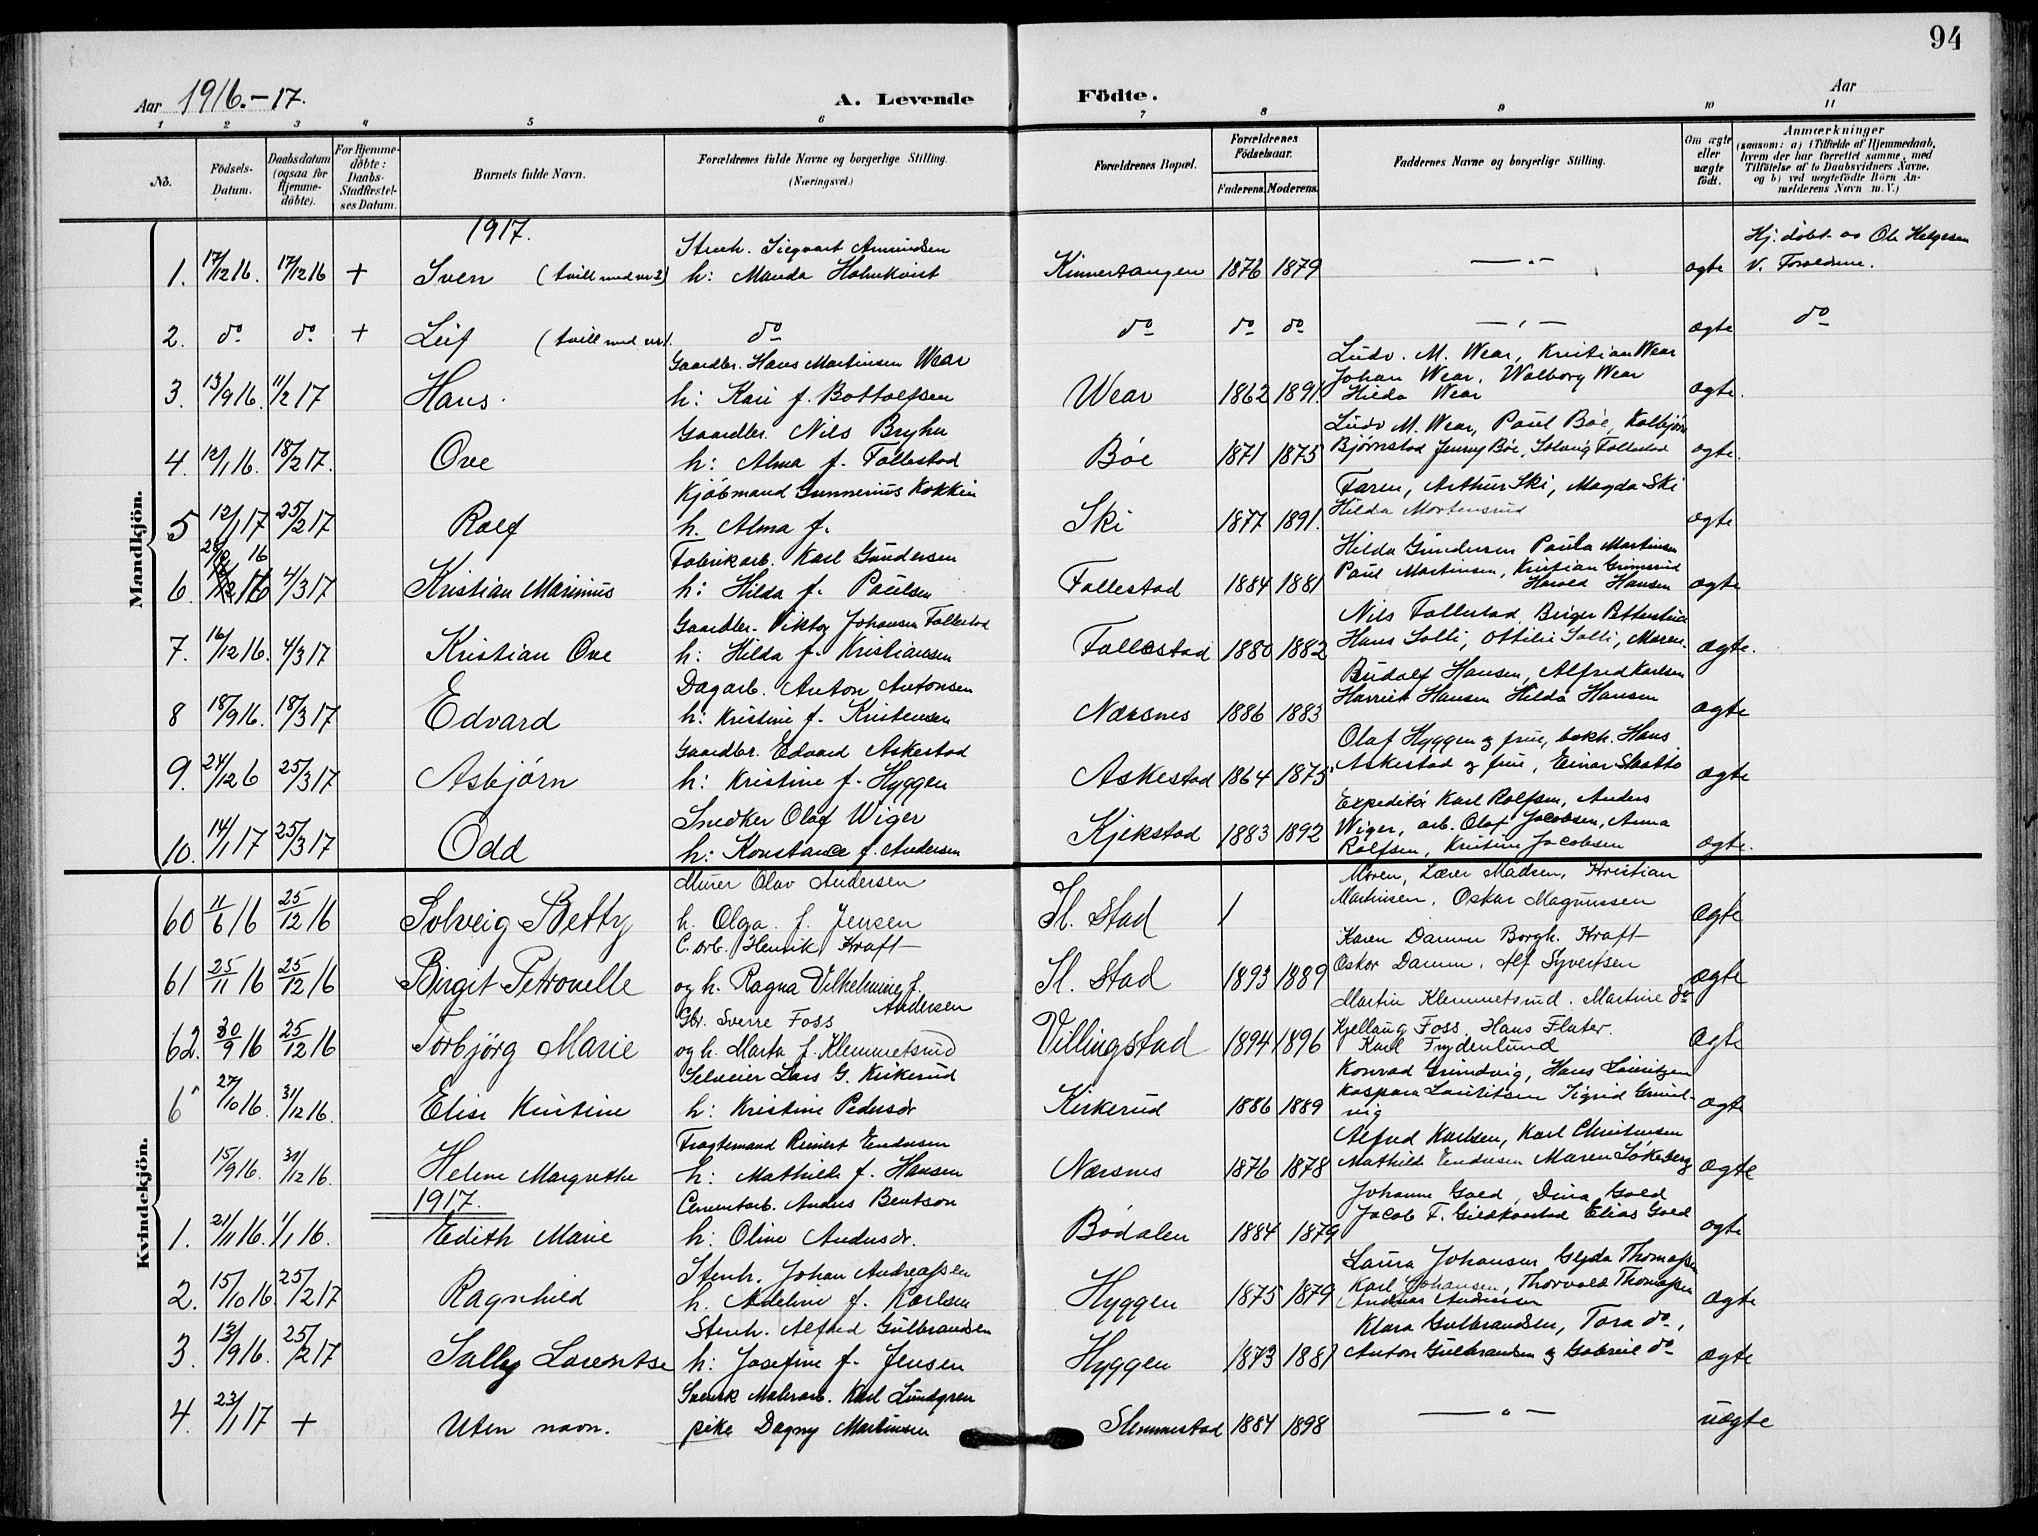 94
Aar 1916.-17.
A. Levende Födte.
Aar
1 2 3 4 5 6 7 8 9 10 11
No.
Födsels-Datum.
Daabsdatum (ogsaa for Hjemme-döbte).
For Hjemme-döbte: Daabs-Stadfæstel-ses Datum.
Barnets fulde Navn.
Forældrenes fulde Navne og borgerlige Stilling. (Næringsvei.)
Forældrenes Bopæl.
Forældrenes Födselsaar.
Faderens. Moderens.
Faddernes Navne og borgerlige Stilling.
Om ægte eller uægte födt.
Anmærkninger
(saasom: a) i Tilfælde af Hjemmedaab, hvem der har forrettet samme, med Tilföielse af to Daabsvidners Navne, og b) ved uægtefödte Börn An-melderens Navn m. V.)
Mandkjön.
1917.
Stenh. Sigvart Amundsen
Hj. döbt. av Ole Helgesen
1. 17/12 16. 17/12 16 + Sven (tvill med nr 2) h: Manda Holmkvist Kinnertangen 1876 1879 — " — ægte V. Foreldrene.
2. do do + Leif (tvill med nr 1. do do do do — " — ægte do
Gaardbr. Hans Martinsen Wear
Ludv. M. Wear, Kristian Wear
Johan Wear, Walborg Wear
3. 13/9 16. 11/2 17 Hans. h: Kari f. Bottolfsen Wear 1862 1891. Hilda Wear ægte.
Gaardbr. Nils Bryhn
Ludv M. Wear, Paul Böe, Kolbjörn
4. 12/1 16. 18/2 17. Ove h: Alma f. Follestad Böe 1871 1875 Bjørnstad Jenny Böe, Solveig Follestad ægte.
Kjöbmand Gunnerius Kokkin
Faren, Arthur Ski, Magda Ski
5 12/1 17 25/2 17 Rolf h. Alma f. Ski 1877 1891. Hilda Mortensrud ægte
16
Fabrikarb. Karl Gundersen
Hilda Gundersen Paula Martinsen
Paul Martinsen, Kristian Grimsrud
6. 4/3 17 Kristian Marinius h: Hilda f. Paulsen Follestad 1884 1881 Harald Hansen ægte
Gaardbr. Viktor Johansen Follestad
Nils Follestad, Birger Pettersen
7. 16/12 16. 4/3 17 Kristian Ove h: Hilda f. Kristiansen Follestad 1880 1882 Hans Solli, Ottilie Solli, Moren. ægte.
Dagarb. Anton Antonsen
Rudolf Hansen, Alfred Karlsen
8 18/9 16. 18/3 17 Edvard h: Kristine f. Kristensen Nærsnes 1886 1883 Harriet Hansen Hilda Hansen ægte
Gaardbr. Edvard Askestad
Olaf Hyggen og frue, bokh. Hans
9. 24/12 6 25/3 17 Asbjørn h: Kristine f. Hyggen Askestad 1864 1875 Askestad og frue, Einar Slaatto ægte
Snedker Olaf Wiger
Expeditör Karl Rolfsen, Anders
Wiger, arb. Olaf Jacobsen, Anna
10. 14/1 17 25/3 17 Odd h: Konstance f. Andersen Kjekstad 1883 1892 Rolfsen, Kristine Jacobsen ægte.
Kvindekjön.
Murer Olav Andersen
Moren, Lærer Madsen, Kristian
60 11/6 16 25/12 16 Solveig Betty h. Olga f. Jensen Sl. Stad / Martinsen, Oskar Magnussen ægte
C. arb. Henrik Kraft
Karen Damm Borgh. Kraft
61 25/11 16 25/12 16 Birgit Petronelle og h. Ragna Vilhelmine f. Andersen Sl. Stad 1893 1889 Oskar Damm, Alf Syvertsen ægte
Gbr. Sverre Foss
Martin Klemmetsrud. Martine do
62. 30/9 16 25/12 16 Torbjörg Marie og h. Marta f. Klemmetsrud Villingstad 1894 1896 Kjellaug Foss, Hans Flater. ægte
Karl Frydenlund
Selveier Lars G. Kirkerud
Konrad Grundvig, Hans Lauritzen
6 27/10 16. 31/12 16. Elise Kristine h: Kristine Pedersdr Kirkerud 1886 1889 Kaspara Lauritsen Sigrid Grund-vig ægte
Fragtemand Reinert Endresen
Alfred Karlsen, Karl Christensen
15/9 16. 31/12 16. Helene Margrethe h: Mathilde f. Hansen Nærsnes 1876 1878 Mathilde Endresen Maren Løkeberg ægte
1917.
Cementarb. Anders Bentson
Johanne Goed, Dina Goed
1. 21/11 16. 1/1 16. Edith Marie h: Oline Andersdr. Bödalen 1884 1879 Jacob F. Gildkonstad Elias Goed ægte
Stenh. Johan Andreassen
Laura Johansen Glyda Thomassen
Karl Johansen, Thorvald Thomassen
2. 15/10 16. 25/2 17 Ragnhild h. Adeline f. Karlsen Hyggen 1875 1879 Andreas Andresen ægte
Stenh. Alfred Gulbrandsen
Klara Gulbrandsen, Tora do,
3. 13/9 16. 25/2 17 Sally Lorentse h: Josefine f. Jensen Hyggen 1873 1881 Anton Gulbrandsen og Gabriel do ægte
Svensk Malerarb. Karl Lundgren
4. 23/1 17 + Uten navn. pike Dagny Martinsen Slemmestad 1884 1898 — " — uægte